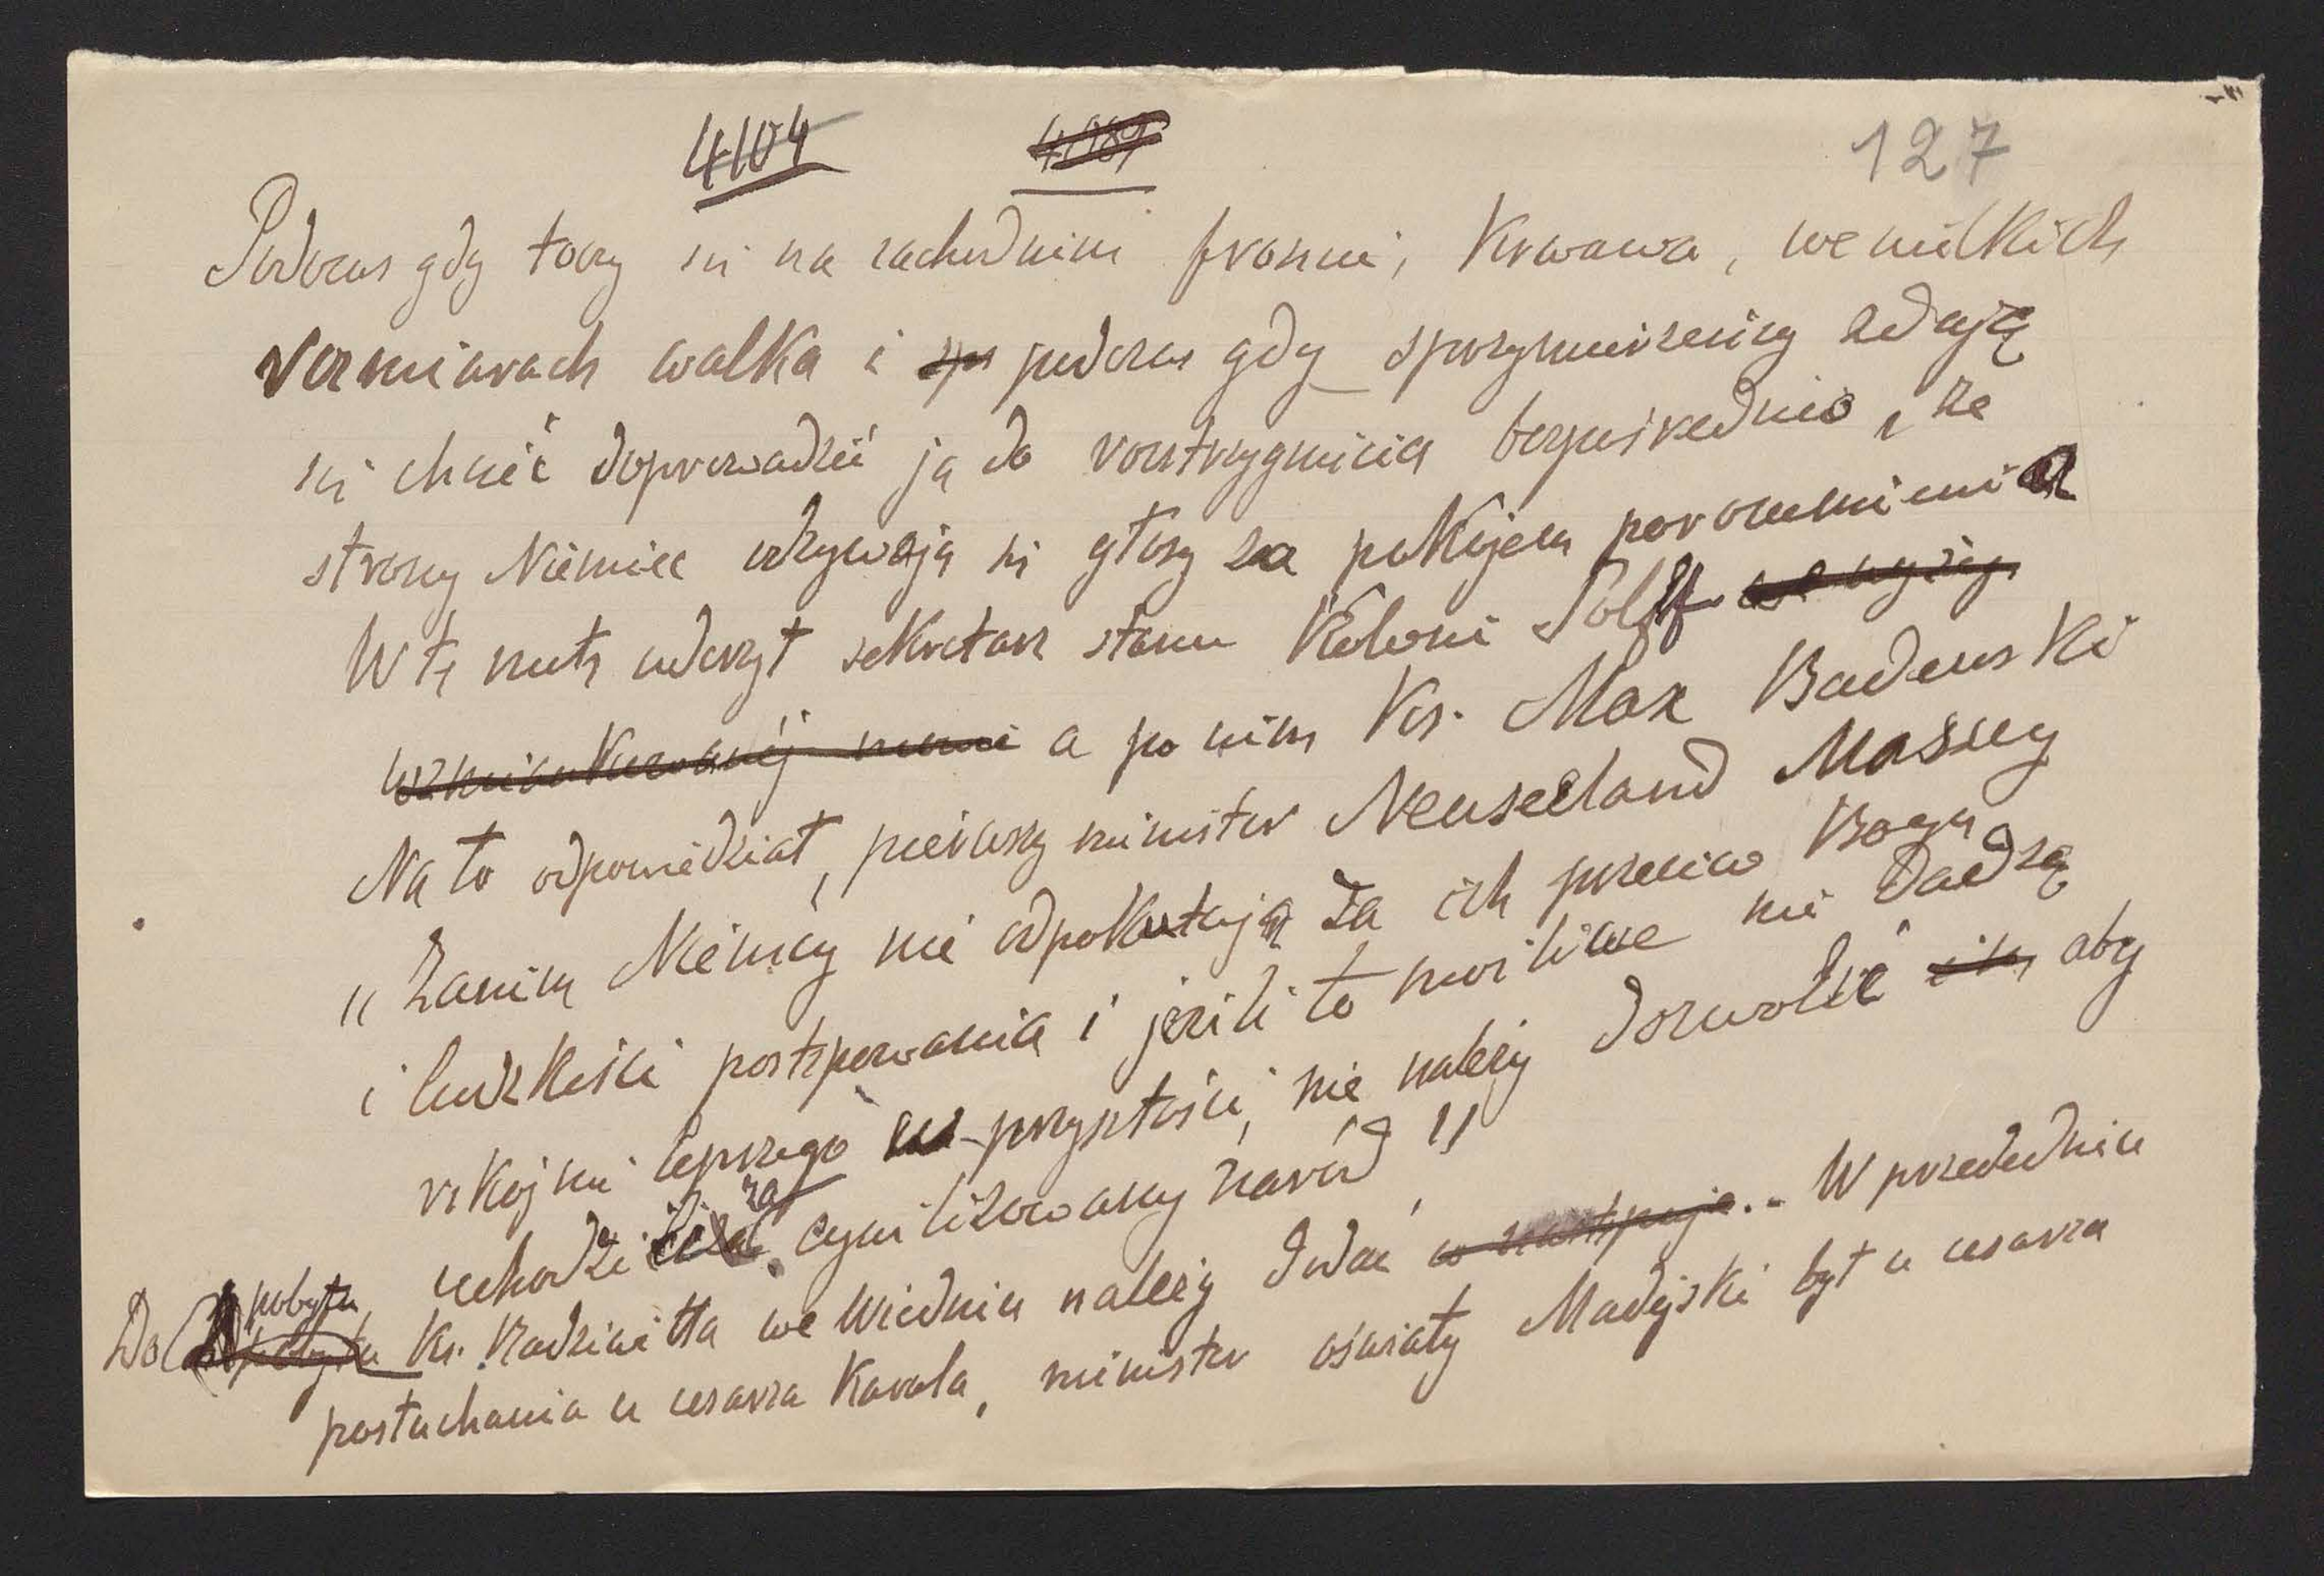 4104 127
Podczas gdy toczy się na zachodnim froncie, krwawa, we wielkich
rozmiarach walka i podczas gdy sprzymierzeńcy zdają
się chcieć doprowadzić ją do rozstrzygnięcia bezpośrednio, ze
strony Niemiec odzywają się głosy za pokojem porozumienia
W tę nutę uderzył sekretarz stanu Koloni Solf
a po nim Ks. Max Badenski
Na to odpowiedział, pierwszy minister Neuseeland Massey
"Zanim Niemcy nie odpokutują za ich przeciw Bogu
i ludzkości postępowania i jeżeli to możliwe nie dadzą
rękojmi lepszego przyszłości, nie należy dozwolić aby
uchodzili za cywilizowany naród"
Do pobytu Ks. Radziwiłła we Wiedniu należy dodać W przededniu
posłuchania u cesarza Karola, minister oświaty Madejski był u cesarza